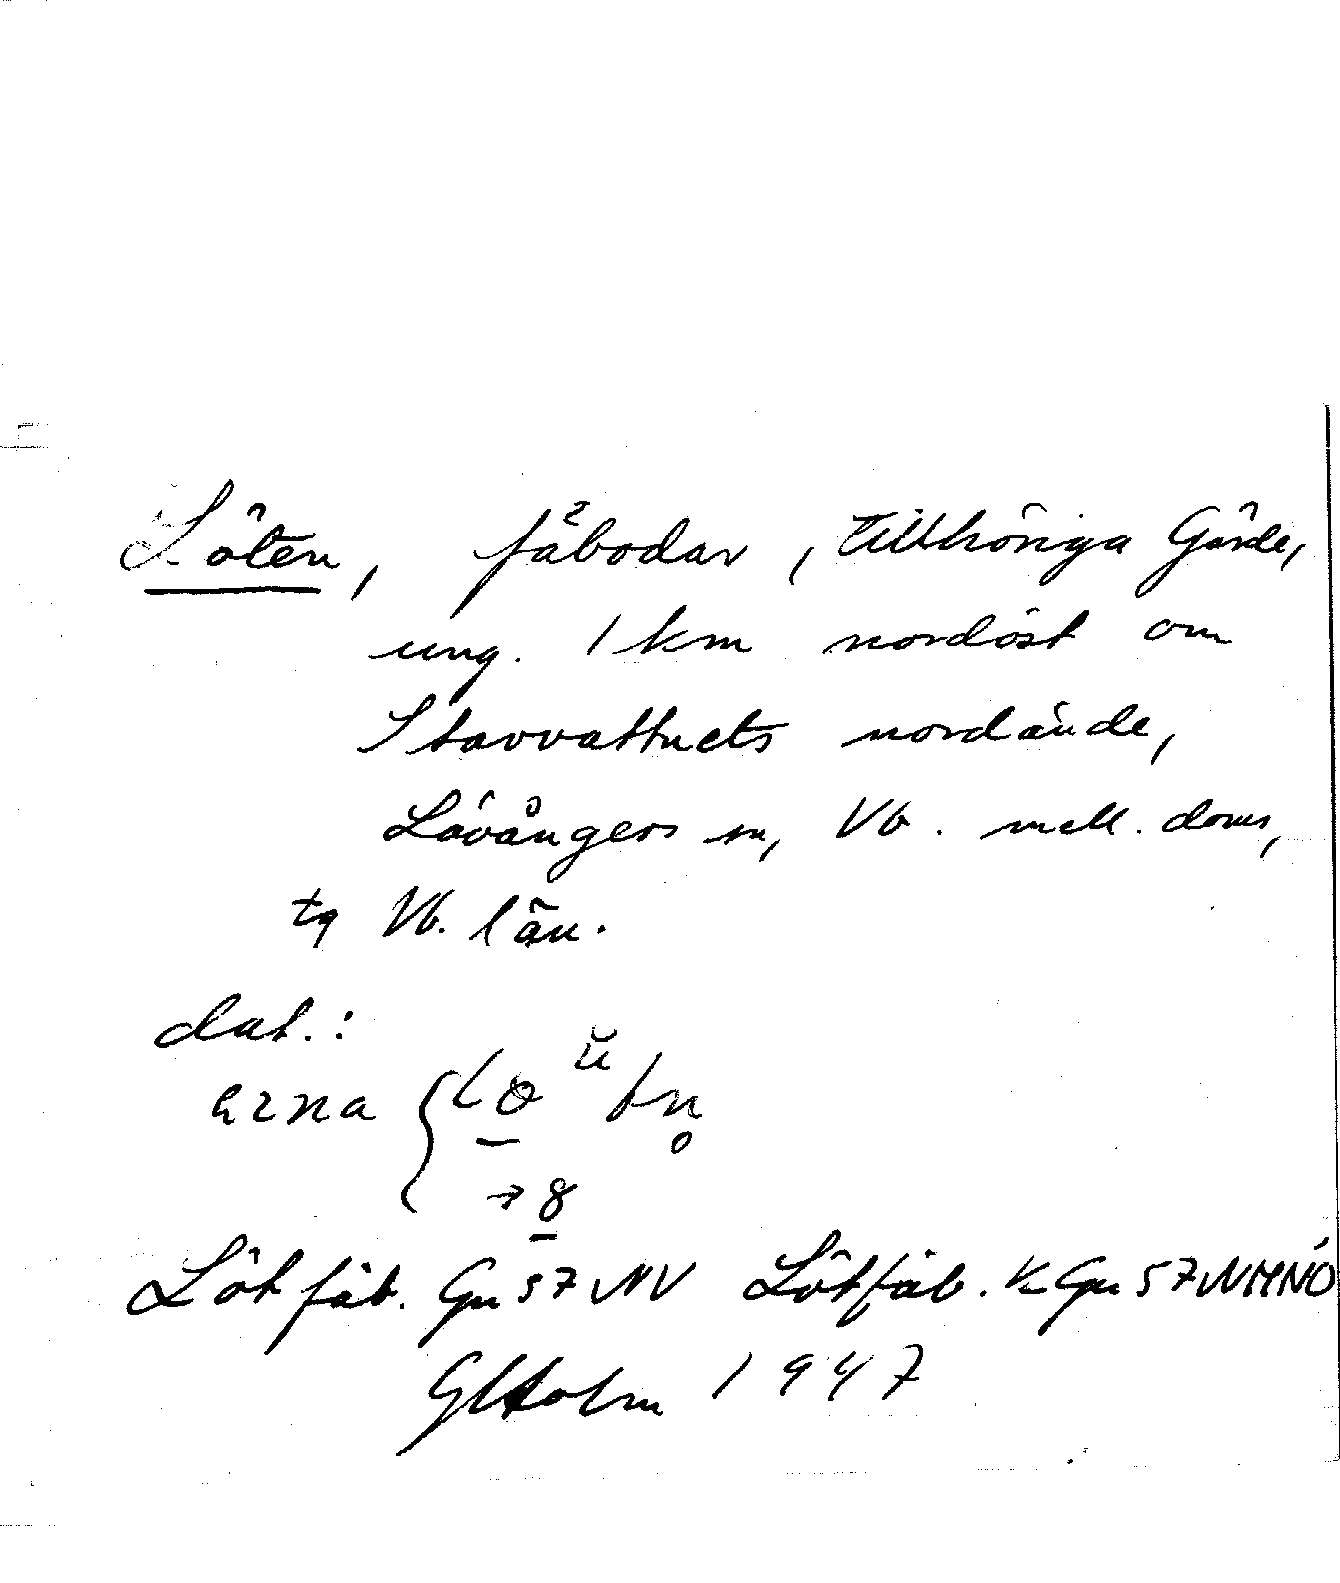 Löten, fäbodar, tillhöriga Gärde,
ung. 1 km nordöst om
Stavvattnets nordände,
Lövångers sn, Vb. mell. doms,
tg Vb. län.
dat.:
Löt fäb. Gn 57 NV Löt fäb. K Gn 57 NMNÖ
GHolm 1947